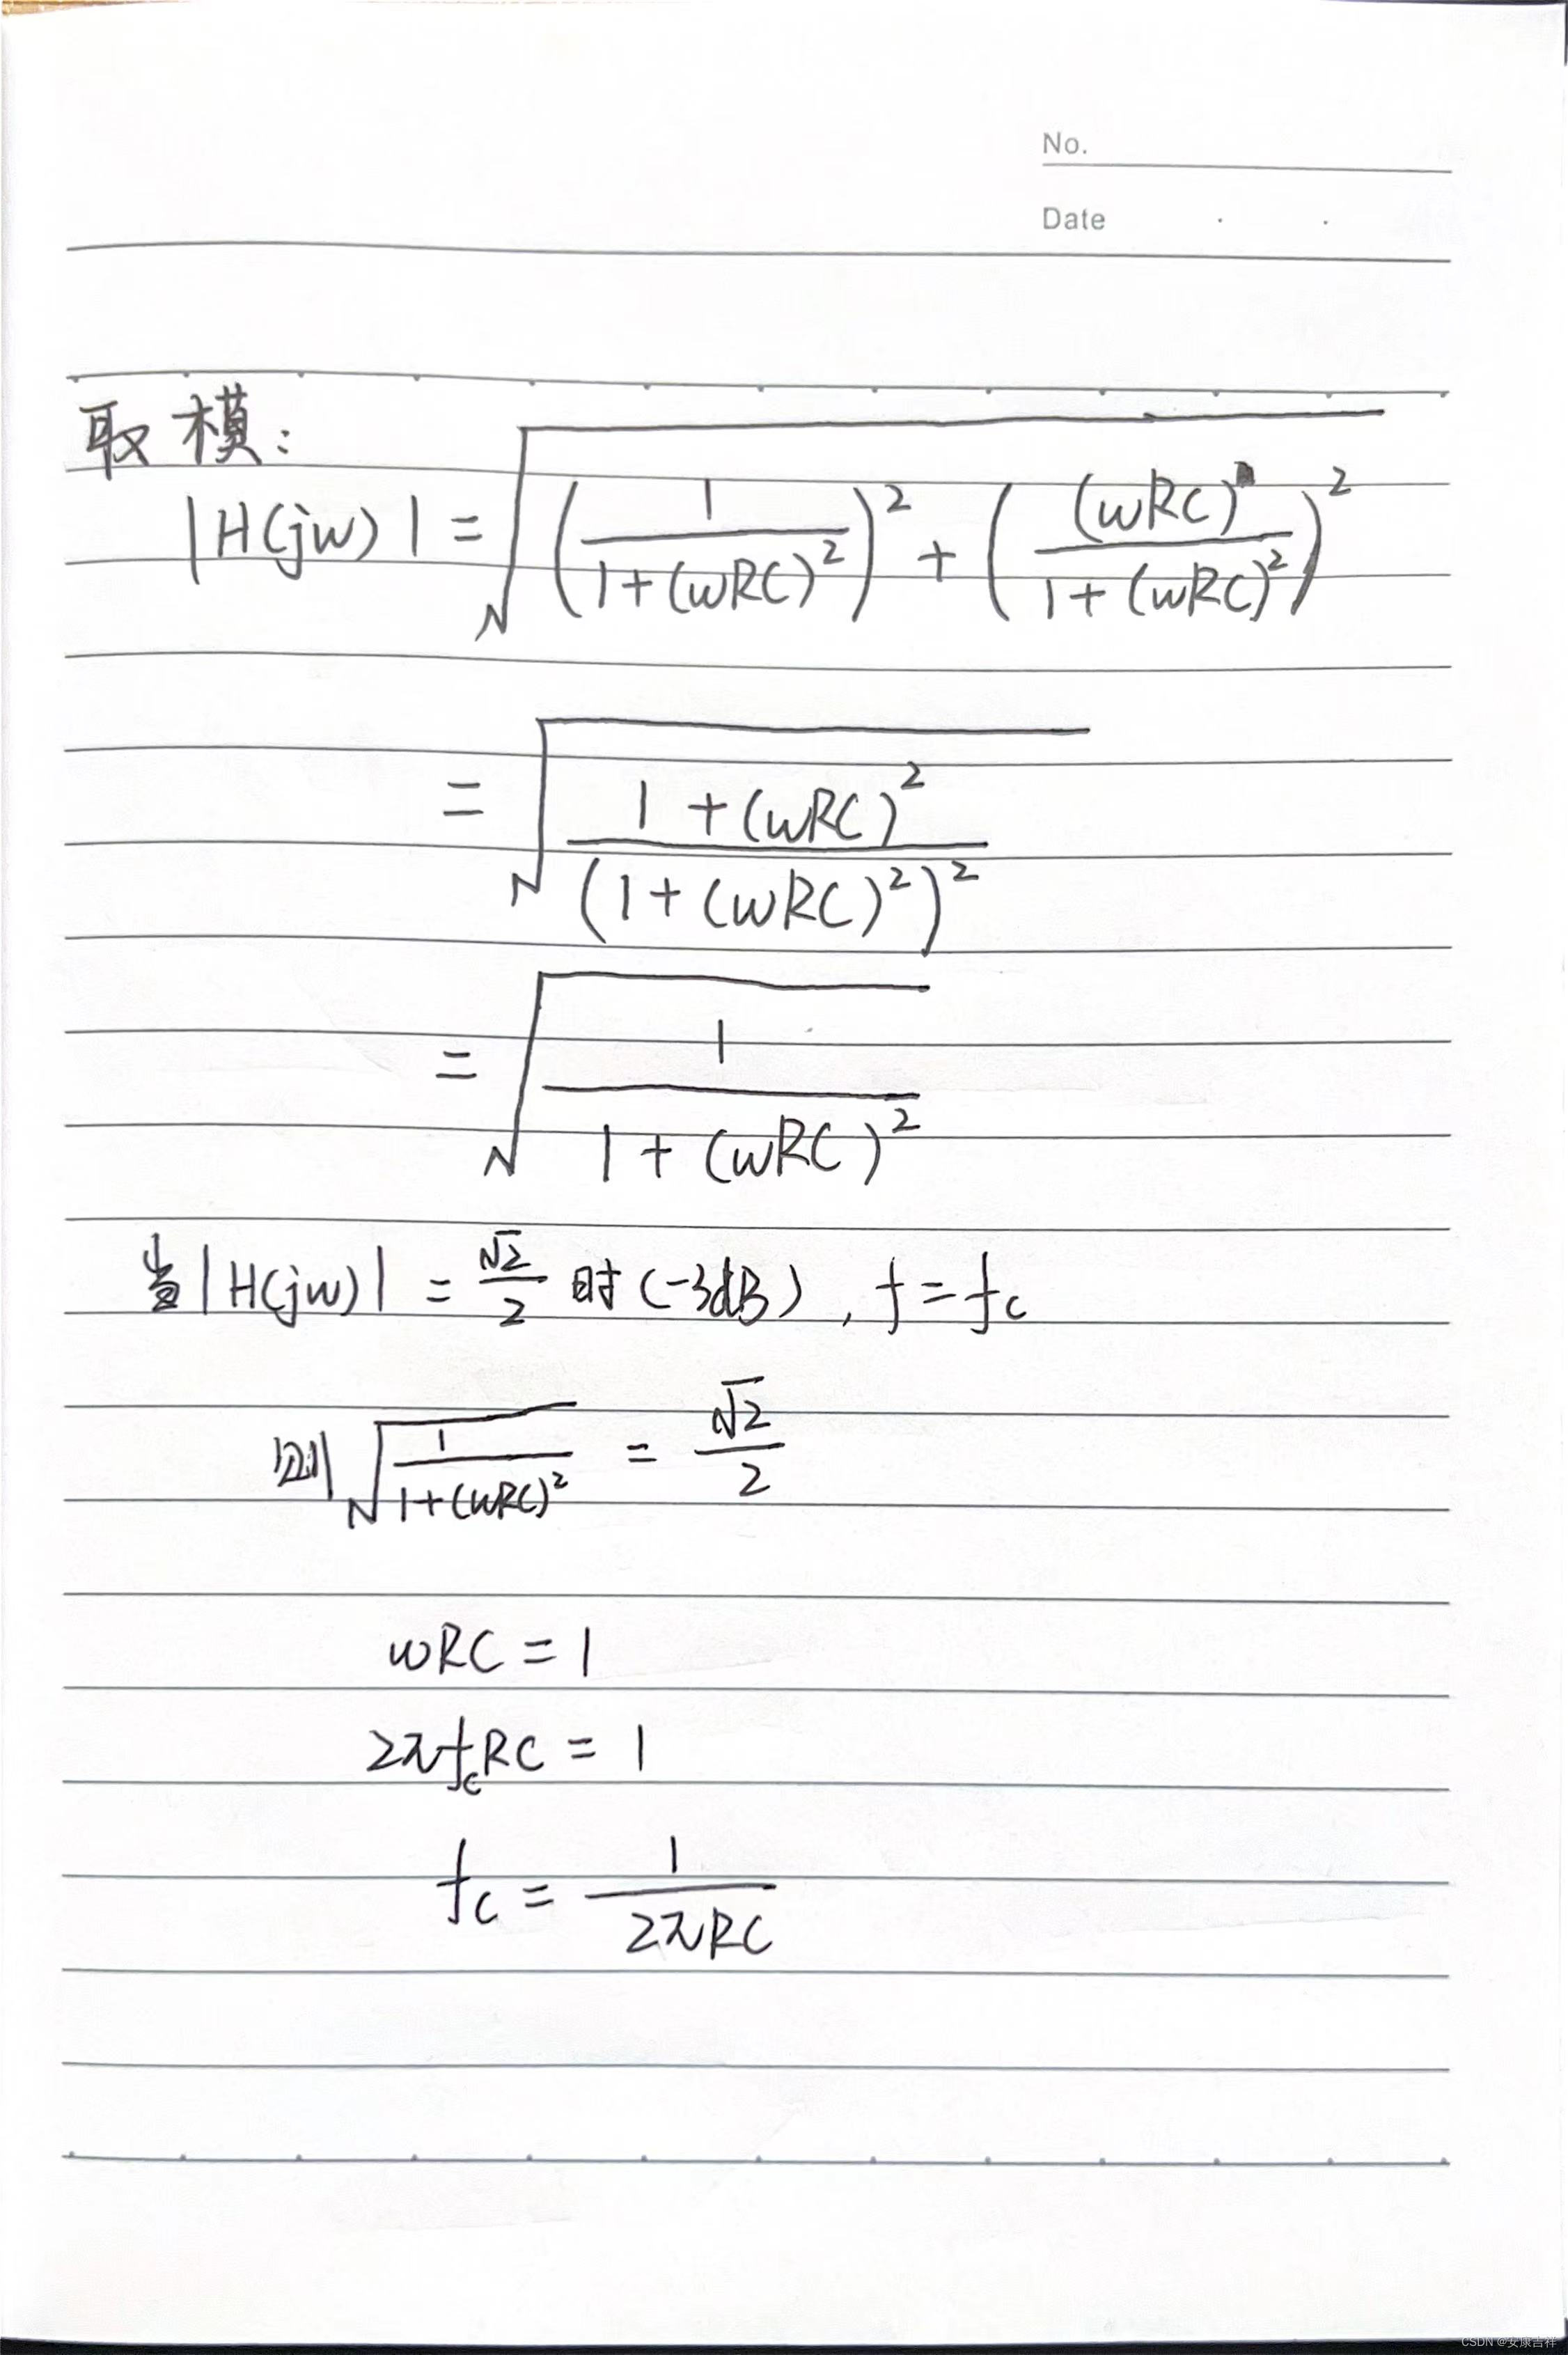 No.
Date . .
取模:
|H(jw)| = √((1/(1+(wRC)²))² + ((wRC)/(1+(wRC)²))²)
= √((1+(wRC)²)/(1+(wRC)²)²)
= √(1/(1+(wRC)²))
当|H(jw)| = √2/2 时(-3dB), f=fc
则√(1/(1+(wRC)²)) = √2/2
wRC = 1
2πfcRC = 1
fc = 1/(2πRC)
CSDN @安康吉祥